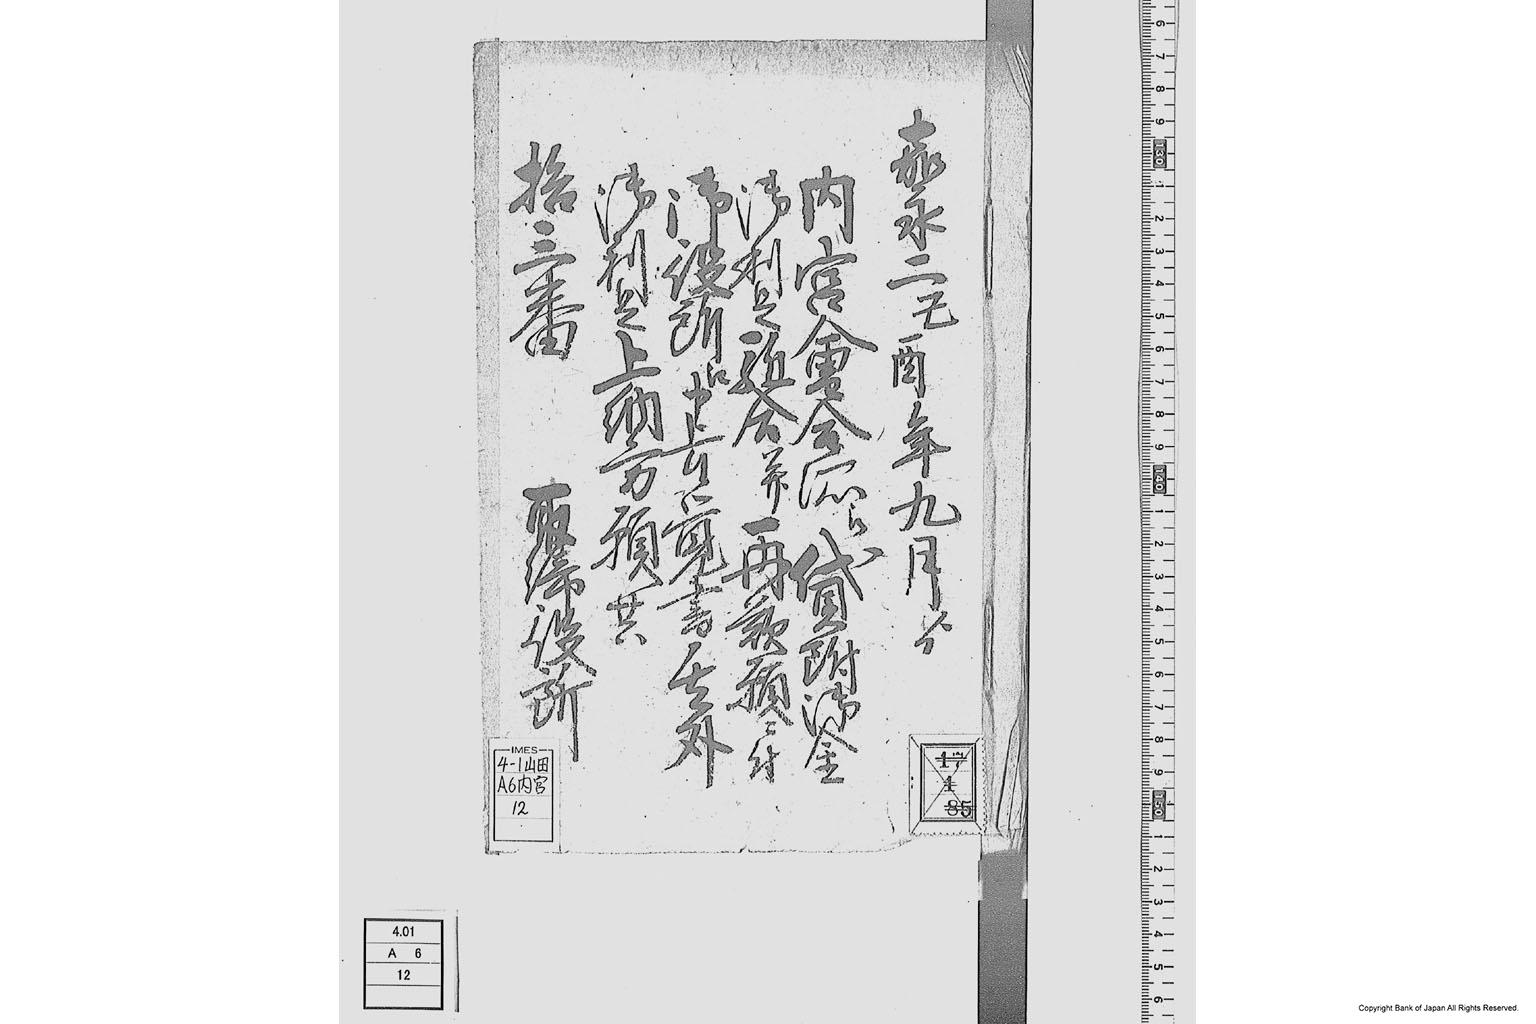 嘉永二己酉年九月ゟ
内宮會合所ゟ貸附御金
御利足融合并再歎願ニ付
御役所江申上候覚書其外
御利足上納方願共
拾三番
取締役所
IMES
4-1山田
A6内宮
12
17
1
85
4.01
A 6
12
Copyright Bank of Japan All Rights Reserved.